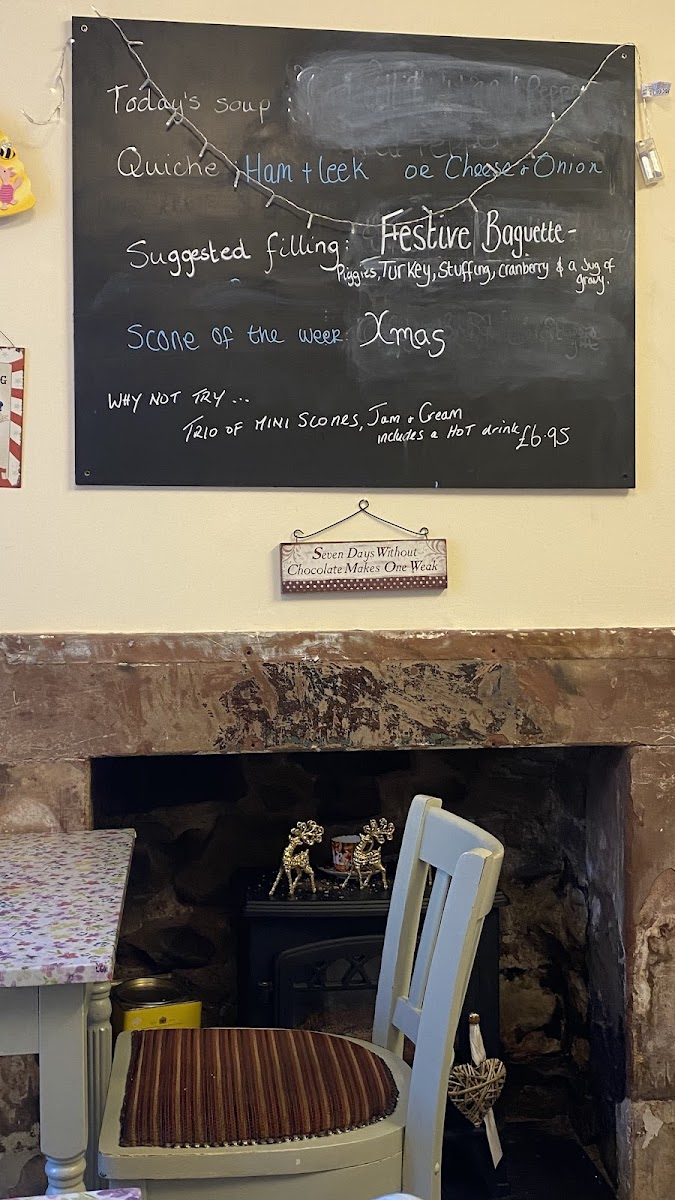 Today's soup :
Quiche : Ham + leek or Cheese + Onion
Suggested filling: Festive Baguette -
Piggies, Turkey, Stuffing, cranberry & a Jug of
gravy.
Scone of the week: Xmas
WHY NOT TRY ...
TRIO OF MINI SCONES, Jam + Cream
includes a HOT drink £6.95
Seven Days Without
Chocolate Makes One Weak